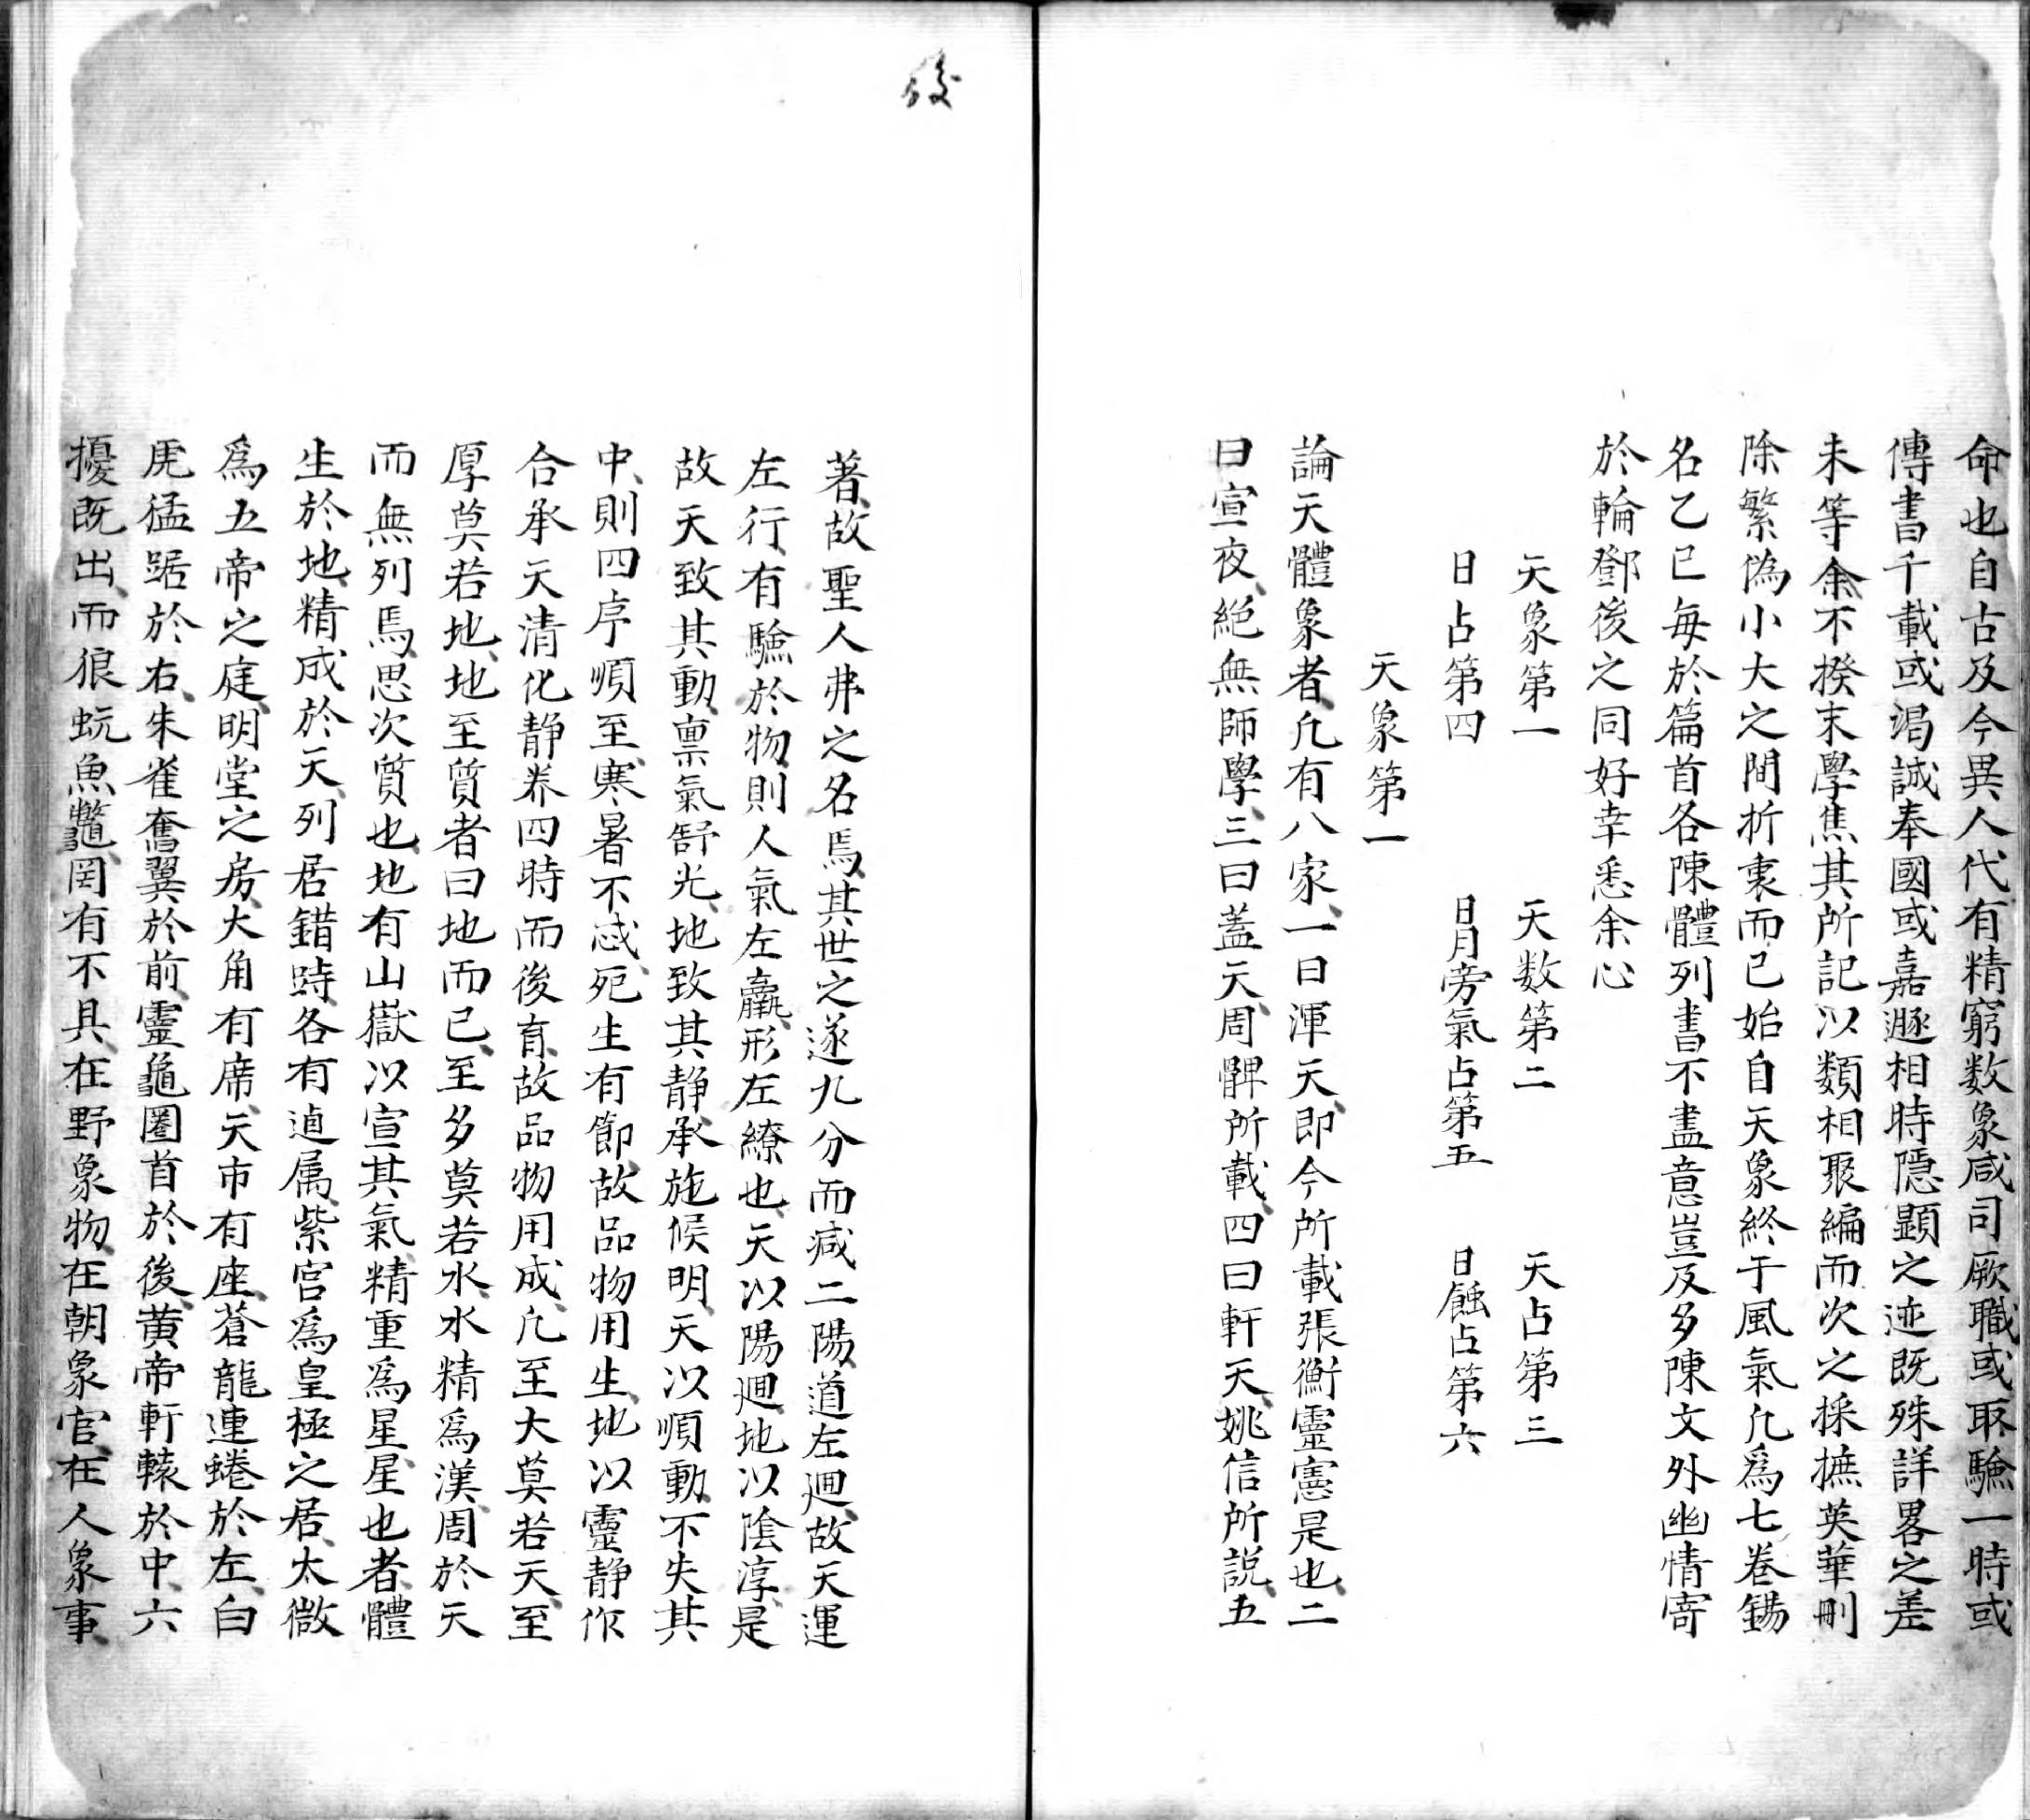 命也自古及今異人代有精窮数象咸司厥職或取驗一時或
傳書千載或竭誠奉國或嘉遯相時隱顕之迹既殊詳畧之差
未等余不揆末學集其所記以類相聚編而次之採摭英華刪
除繁偽小大之間折衷而已始自天象終于風氣凢爲七卷錫
名乙巳每於篇首各陳體列書不盡意豈及多陳文外幽情寄
於輪鄧後之同好幸悉余心
天象第一 天数第二 天占第三
日占第四 日月旁氣占第五 日蝕占第六
天象第一
論天體象者凢有八家、一曰渾天、即今所載張衡靈憲是也、二
曰宣夜、絶無師學、三曰蓋天、周髀所載、四曰軒天、姚信所説、五
後
著、故聖人弗之名焉、其世之遂九分而减二陽、道左廻、故天運
左行、有驗於物、則人氣左羸、形左繚也、天以陽廻、地以陰淳、是
故天致其動、禀氣舒光、地致其静、承施候明、天以順動、不失其
中、則四序順至、寒暑不忒、死生有節、故品物用生、地以靈静、作
合承天、清化静养、四時而後育、故品物用成、凢至大莫若天、至
厚莫若地、地至質者曰地而已、至多莫若水、水精爲漢、周於天
而無列焉、思次質也、地有山嶽、以宣其氣、精重爲星、星也者、體
生於地、精成於天、列居錯跱、各有逌属、紫宫爲皇極之居、太微
爲五帝之庭、明堂之房、大角有席、天市有座、蒼龍連蜷於左、白
虎猛踞於右、朱雀奮翼於前、靈龜圈首於後、黄帝軒轅於中、六
擾既出、而狼蚖魚鼈罔有不具、在野象物、在朝象官、在人象事、